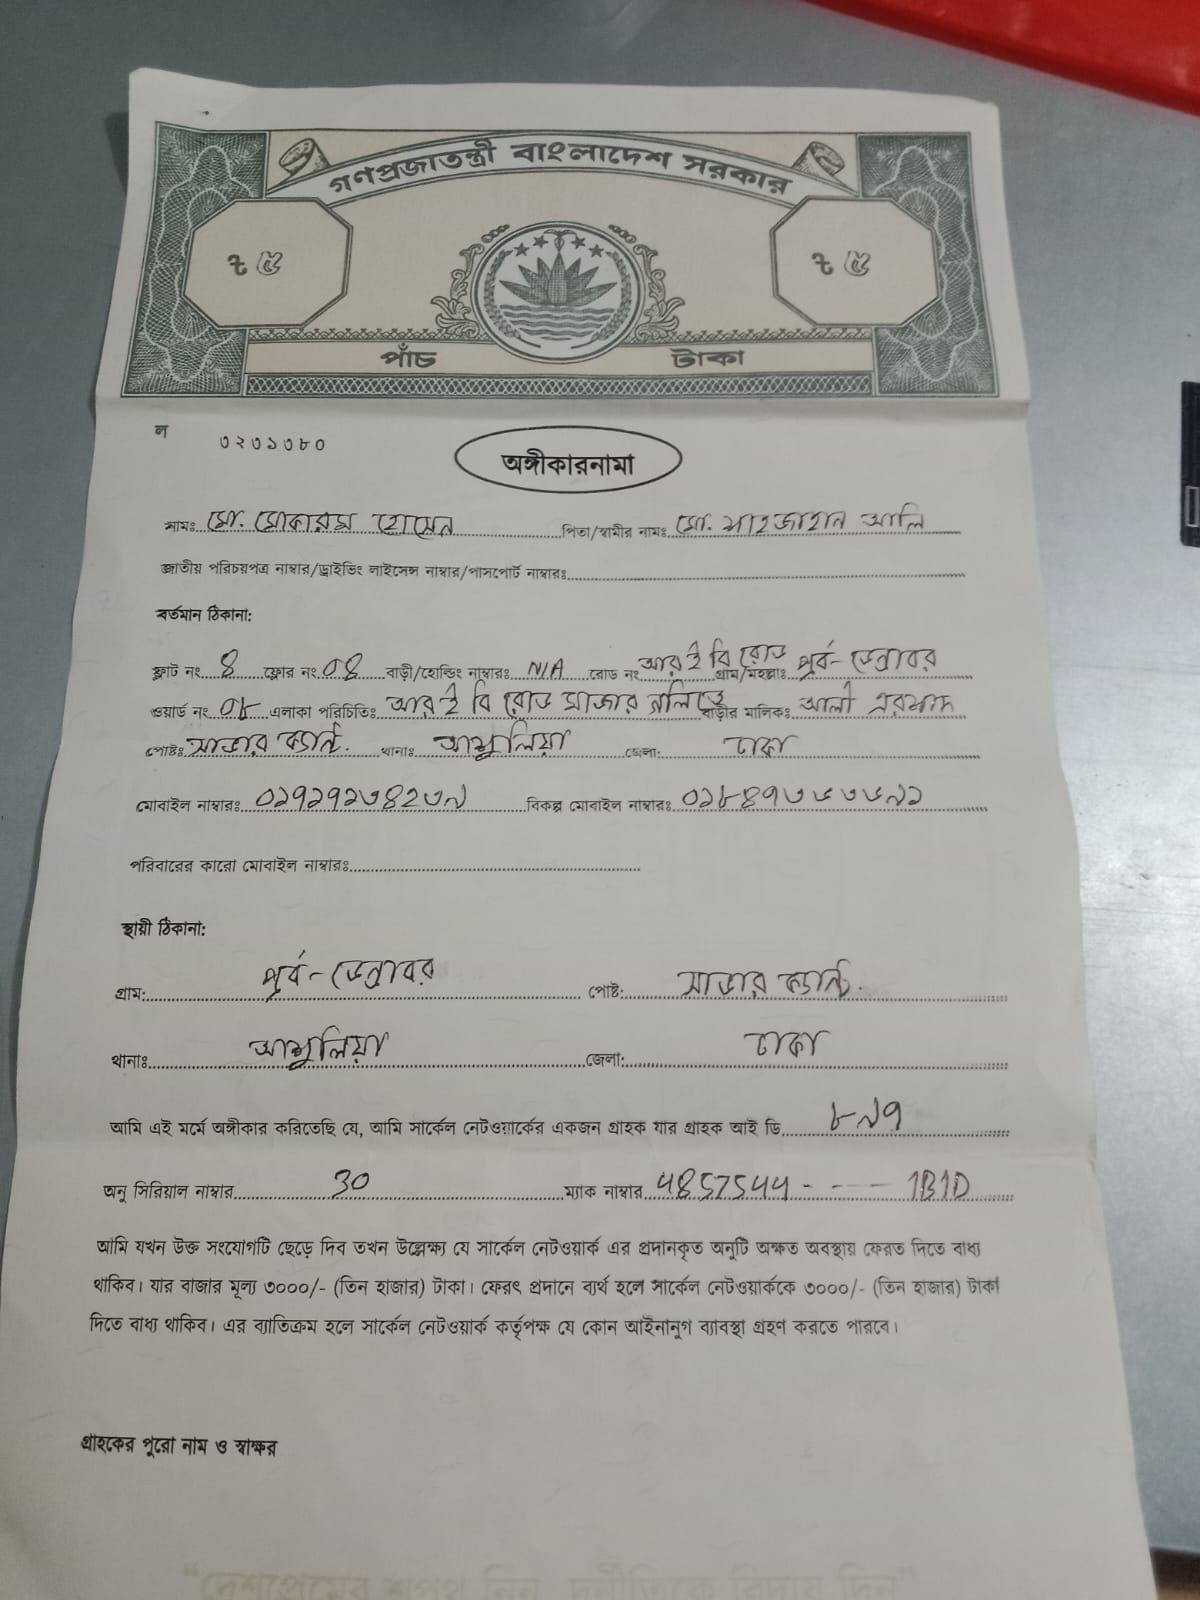 গণপ্রজাতন্ত্রী বাংলাদেশ সরকার
৳ ৫ ৳ ৫
পাঁচ টাকা
ল ৩২৩১৩৮০
অঙ্গীকারনামা
নামঃ মো. মোকারম হোসেন পিতা/স্বামীর নামঃ মো. শাহজাহান আলি
জাতীয় পরিচয়পত্র নাম্বার/ড্রাইভিং লাইসেন্স নাম্বার/পাসপোর্ট নাম্বারঃ
বর্তমান ঠিকানা:
ফ্লাট নং 4 ফ্লোর নং 04 বাড়ী/হোল্ডিং নাম্বারঃ N/A রোড নং আর ই বি রোড গ্রাম/মহল্লাঃ পূর্ব-ডেন্ডাবর
ওয়ার্ড নং ০৮ এলাকা পরিচিতিঃ আর ই বি রোড মাজার গলিতে বাড়ীর মালিকঃ আলী এরশাদ
পোষ্টঃ সাভার ক্যান্ট. থানাঃ আশুলিয়া জেলা: ঢাকা
মোবাইল নাম্বারঃ ০১৭১৭১৩৪২৩৯ বিকল্প মোবাইল নাম্বারঃ ০১৮৪৭৩৬৩৬৯১
পরিবারের কারো মোবাইল নাম্বারঃ
স্থায়ী ঠিকানা:
গ্রাম: পূর্ব-ডেন্ডাবর পোষ্ট: সাভার ক্যান্ট.
থানাঃ আশুলিয়া জেলা: ঢাকা
আমি এই মর্মে অঙ্গীকার করিতেছি যে, আমি সার্কেল নেটওয়ার্কের একজন গ্রাহক যার গ্রাহক আই ডি ৮৯৭
অনু সিরিয়াল নাম্বার 30 ম্যাক নাম্বার 48575444 - - - - 1B1D
আমি যখন উক্ত সংযোগটি ছেড়ে দিব তখন উল্লেক্ষ্য যে সার্কেল নেটওয়ার্ক এর প্রদানকৃত অনুটি অক্ষত অবস্থায় ফেরত দিতে বাধ্য
থাকিব। যার বাজার মূল্য ৩০০০/- (তিন হাজার) টাকা। ফেরৎ প্রদানে ব্যর্থ হলে সার্কেল নেটওয়ার্ককে ৩০০০/- (তিন হাজার) টাকা
দিতে বাধ্য থাকিব। এর ব্যাতিক্রম হলে সার্কেল নেটওয়ার্ক কর্তৃপক্ষ যে কোন আইনানুগ ব্যাবস্থা গ্রহণ করতে পারবে।
গ্রাহকের পুরো নাম ও স্বাক্ষর
"দেশপ্রেমের শপথ নিন, দুর্নীতিকে বিদায় দিন"